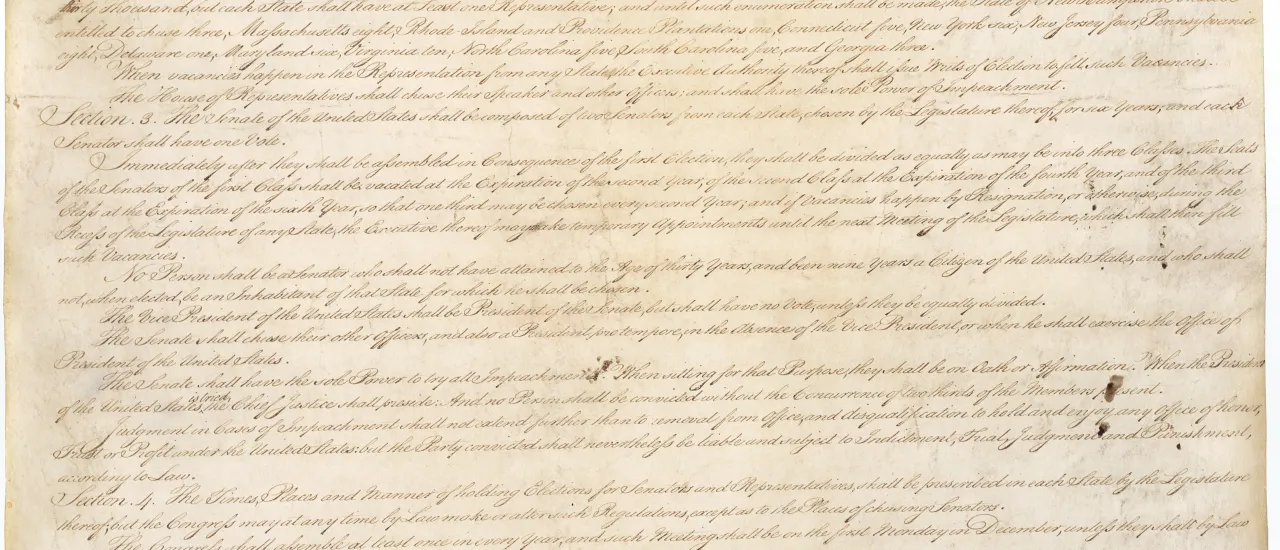 thirty Thousand, but each State shall have at Least one Representative; and until such enumeration shall be made, the State of New Hampshire shall be
entitled to chuse three, Massachusetts eight, Rhode-Island and Providence Plantations one, Connecticut five, New York six, New Jersey four, Pennsylvania
eight, Delaware one, Maryland six, Virginia ten, North Carolina five, South Carolina five, and Georgia three.
When vacancies happen in the Representation from any State, the Executive Authority thereof shall issue Writs of Election to fill such Vacancies.
The House of Representatives shall chuse their Speaker and other Officers; and shall have the sole Power of Impeachment.
Section. 3. The Senate of the United States shall be composed of two Senators from each State, chosen by the Legislature thereof, for six Years; and each
Senator shall have one Vote.
Immediately after they shall be assembled in Consequence of the first Election, they shall be divided as equally as may be into three Classes. The Seats
of the Senators of the first Class shall be vacated at the Expiration of the second Year, of the second Class at the Expiration of the fourth Year, and of the third
Class at the Expiration of the sixth Year, so that one third may be chosen every second Year; and if Vacancies happen by Resignation, or otherwise, during the
Recess of the Legislature of any State, the Executive thereof may make temporary Appointments until the next Meeting of the Legislature, which shall then fill
such Vacancies.
No Person shall be a Senator who shall not have attained to the Age of thirty Years, and been nine Years a Citizen of the United States, and who shall
not, when elected, be an Inhabitant of that State for which he shall be chosen.
The Vice President of the United States shall be President of the Senate, but shall have no Vote, unless they be equally divided.
The Senate shall chuse their other Officers, and also a President pro tempore, in the Absence of the Vice President, or when he shall exercise the Office of
President of the United States.
The Senate shall have the sole Power to try all Impeachments. When sitting for that Purpose, they shall be on Oath or Affirmation. When the President
of the United States is tried, the Chief Justice shall preside: And no Person shall be convicted without the Concurrence of two thirds of the Members present.
Judgment in Cases of Impeachment shall not extend further than to removal from Office, and disqualification to hold and enjoy any Office of honor,
Trust or Profit under the United States: but the Party convicted shall nevertheless be liable and subject to Indictment, Trial, Judgment and Punishment,
according to Law.
Section. 4. The Times, Places and Manner of holding Elections for Senators and Representatives, shall be prescribed in each State by the Legislature
thereof; but the Congress may at any time by Law make or alter such Regulations, except as to the Places of chusing Senators.
The Congress shall assemble at least once in every Year, and such Meeting shall be on the first Monday in December, unless they shall by Law